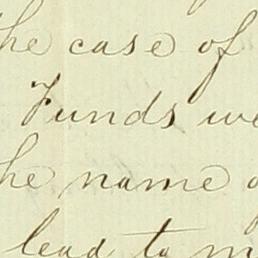 the case of
Funds we
he name o
lead to m